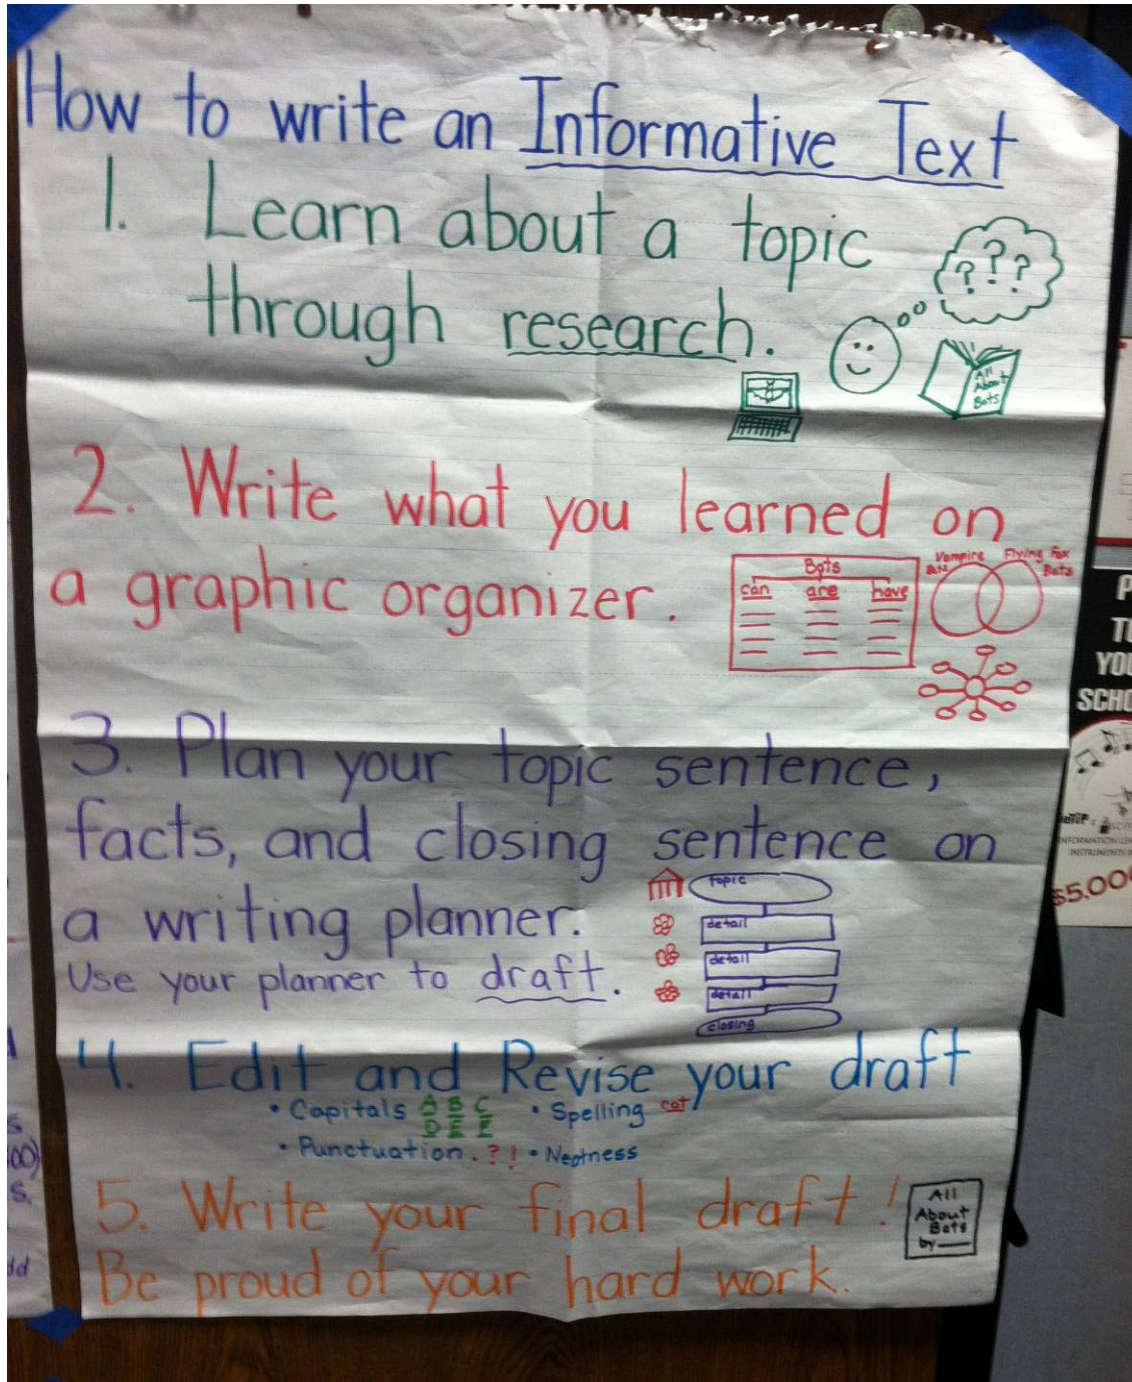 How to write an Informative Text
1. Learn about a topic
? ? ?
through research.
All
About
Bats
2. Write what you learned on
a graphic organizer.
Bats
can are have
Vampire Flying Fox
Bats
3. Plan your topic sentence,
facts, and closing sentence on
a writing planner.
topic
detail
detail
detail
closing
Use your planner to draft.
4. Edit and Revise your draft
• Capitals A B C
D E E
• Spelling cat
• Punctuation . ? !
• Neatness
5. Write your final draft!
All
About
Bats
by
Be proud of your hard work.
YOU
$5,00